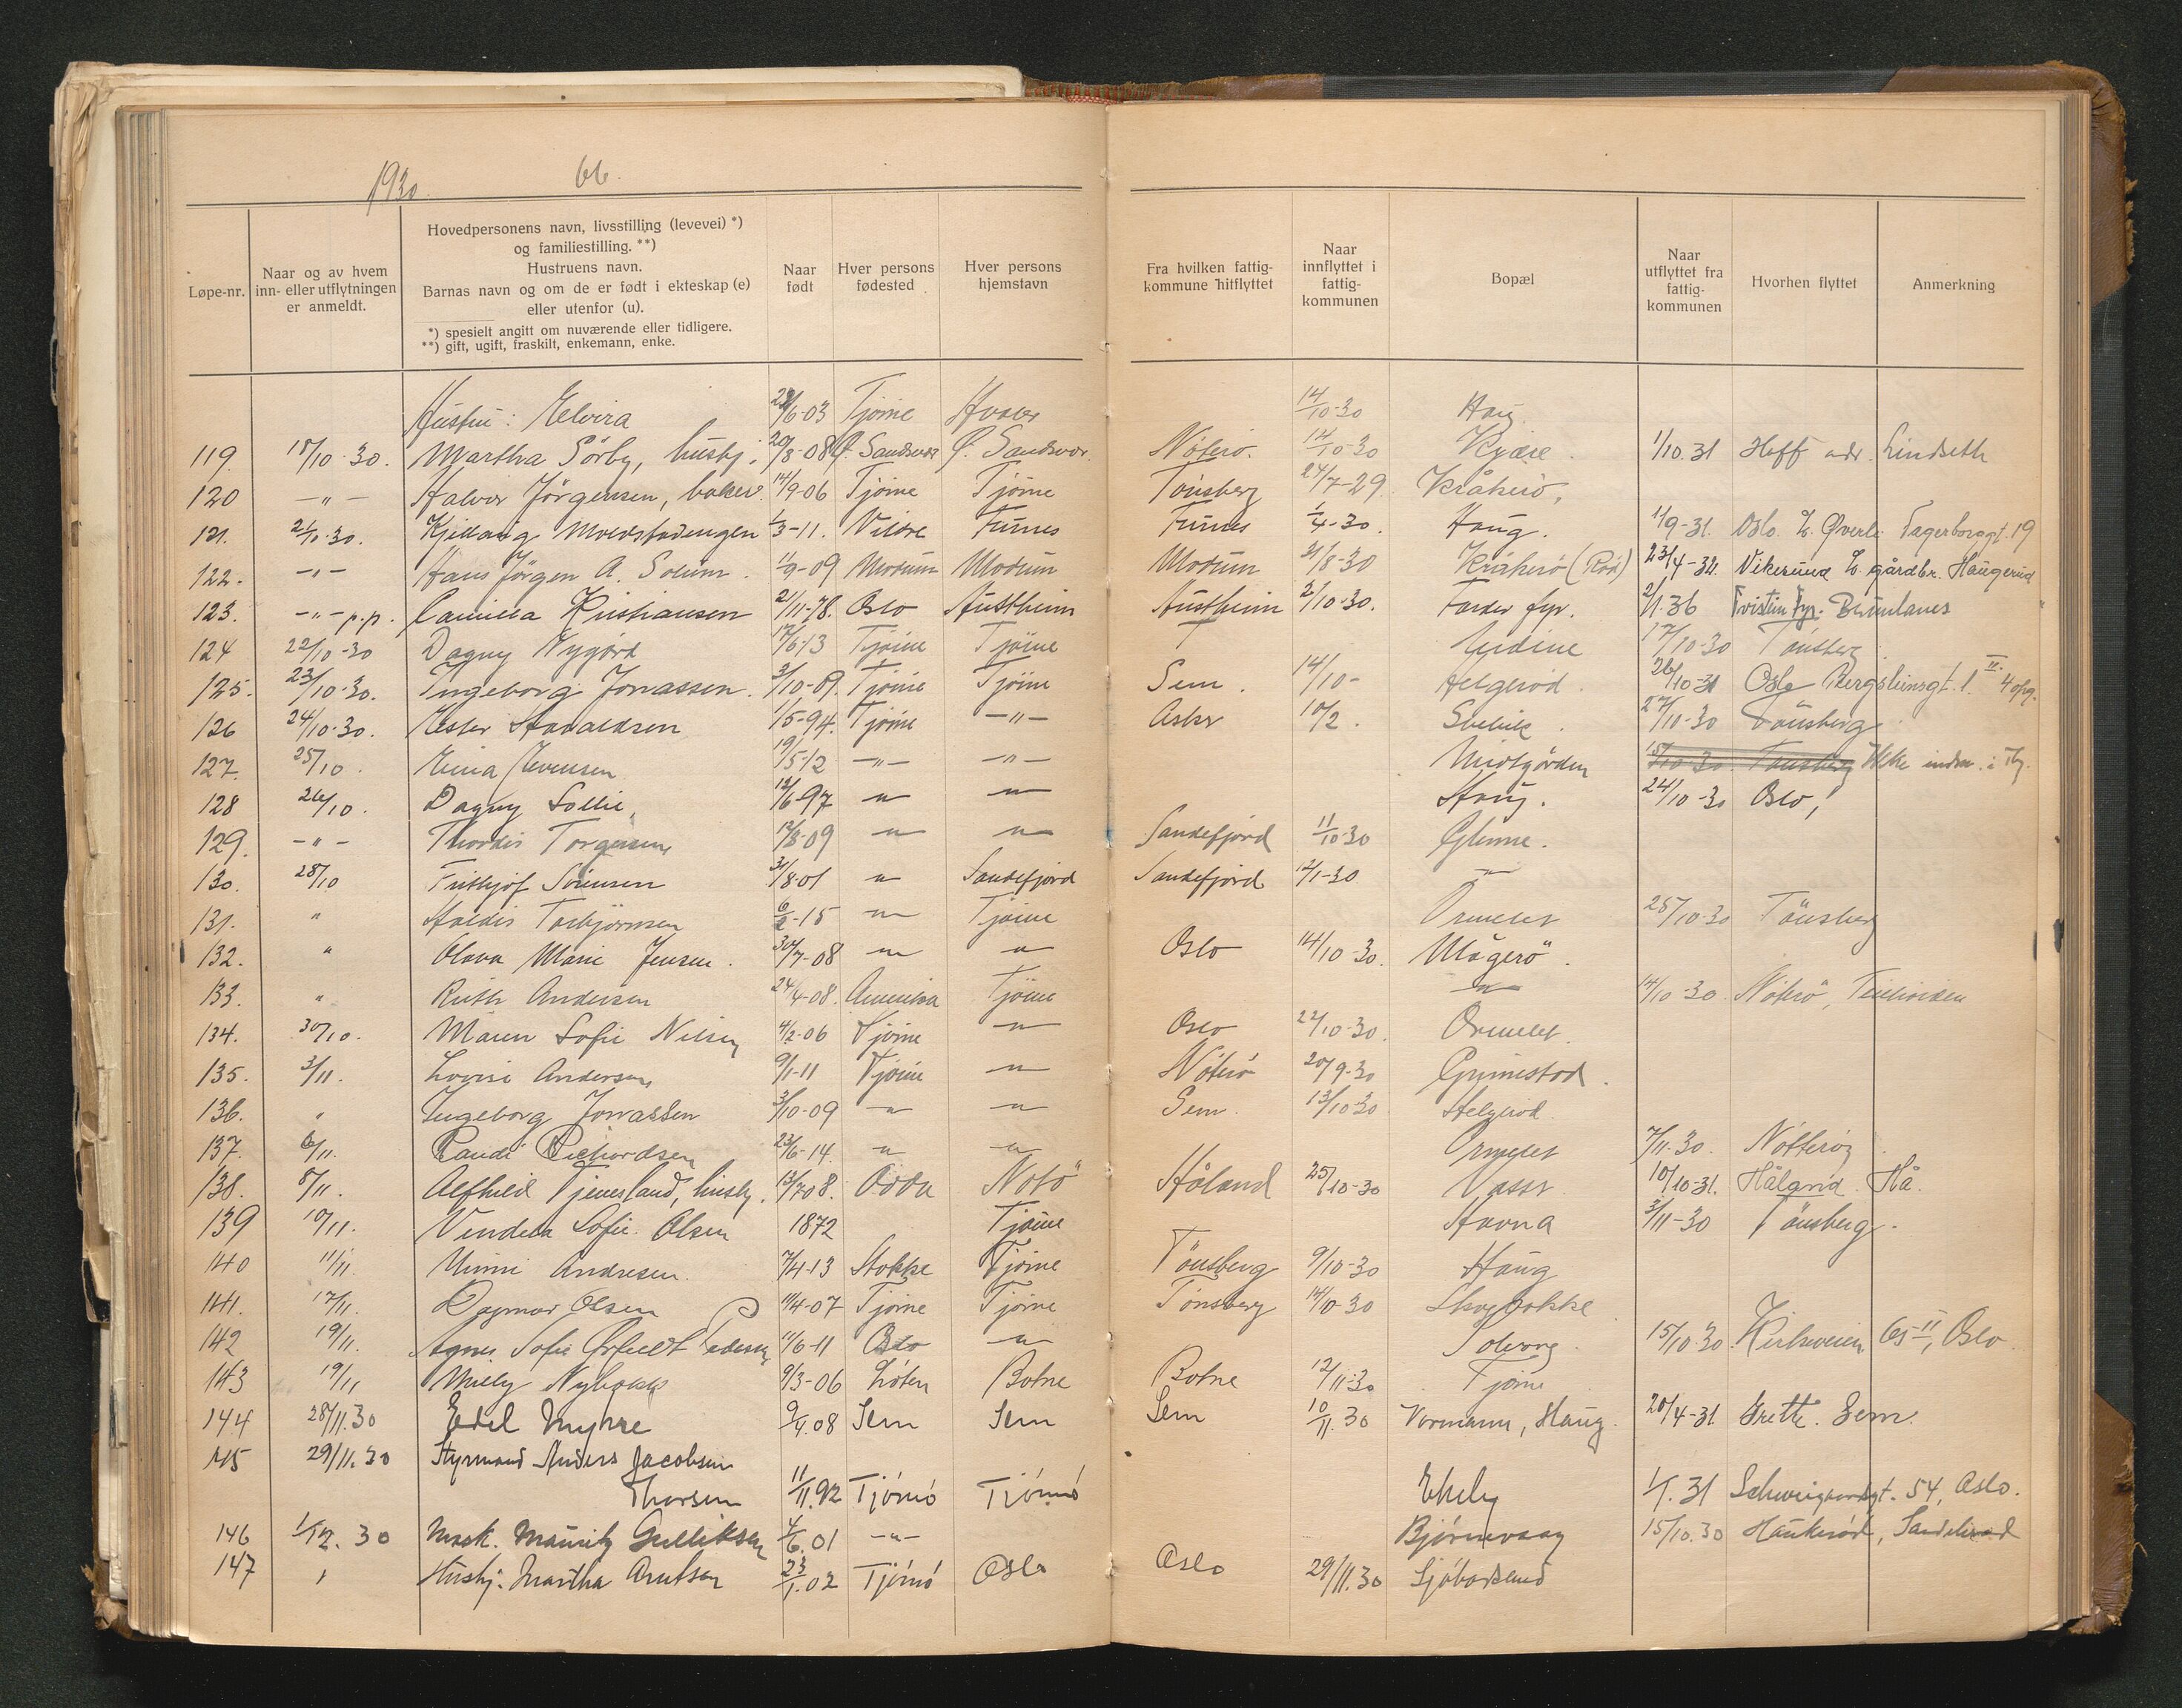 1930. 66.
Løpe-nr. | Naar og av hvem inn- eller utflytningen er anmeldt. | Hovedpersonens navn, livsstilling (levevei) *) og familiestilling. **) Hustruens navn. Barnas navn og om de er født i ekteskap (e) eller utenfor (u). *) spesielt angitt om nuværende eller tidligere. **) gift, ugift, fraskilt, enkemann, enke. | Naar født | Hver persons fødested | Hver persons hjemstavn | Fra hvilken fattig-kommune hitflyttet | Naar innflyttet i fattig-kommunen | Bopæl | Naar utflyttet fra fattig-kommunen | Hvorhen flyttet | Anmerkning
Hustru: Elvira Tjöme 14/10-30 Haug
119. 18/10-30. Martha Sörby, hushj. 20/8-08 Ø. Sandsvær Ø. Sandsvær. Nöterö. 14/10-30 Kjære. 1/10.31 Hoff adr. Lindseth
120 -"- Halvor Jörgensen, baker. 14/9-06 Tjöme Tjöme Tönsberg 24/7-29 Kråkerö,
121. 21/10.30. 1/3-11. Furnes Furnes 1/4-30. Haug. 1/9-31. Oslo. Fagerborggt. 19
122. -"- Hans Jörgen A. Solum. 1/9-09 Modum Modum Modum 21/8-30 Kråkerö (Röd) 23/4-32. Vikersund gårdbr. Haugerud
123. -"- p.p. Camilla Kristiansen 21/11-78. Oslo Austheim Austheim 2/10-30. Færder fyr. 2/1.36
124 22/10-30 Dagny Nygård 17/6-13 Tjöme Tjöme 17/10-30 Tönsberg.
125. 23/10-30. Ingeborg Jonassen. 3/10-09. Tjöme Tjöme Sem. 14/10- Helgeröd. 26/10-31 Oslo Bergsliensgt. 1. II 4 opg.
126 24/10-30. Ester Haraldsen 1/5-94. Tjöme -"- Asker 10/2. 27/11-30 Tönsberg
127. 25/10. Evensen 19/5-12 -"- -"- Midtgården 15/10-30. Tönsberg Ikke indm. i Tbg.
128 26/10. Dagny Sollie, 12/6-97 " " Haug. 24/10-30 Oslo,
129. -"- Thordis Torgersen, 12/8-09 " " Sandefjord 11/10-30 Glenne.
130. 28/10 Frithjof Sörensen 31/8-01 " Sandefjord Sandefjord 12/1-30 "
131. " Haldis Torbjörnsen 6/2-15 " Tjöme Ormelet 25/10-30 Tönsberg
132. " Olava Marie Jensen. 30/7-08 " " Oslo 14/10-30. Mågerö.
133. " Ruth Andersen 24/4-08. Amerika Tjöme " 14/10-30. Nöterö,
134. 30/10. Maren Sofie Nilsen 4/2-06 Tjöme " Oslo 22/10-30. Ormelet.
135. 3/11. Lovise Andersen, 9/1-11 Tjöme " Nöterö 20/9-30 Grimestad.
136. " Ingeborg Jonassen 3/10-09 " " Sem. 13/10-30 Helgeröd.
137. 6/11. Randi Richardsen 23/6-14. " " Ormelet 7/11.30. Nötteröy
138. 8/11. Alfhild Tjensland, hushj. 13/7 08. Odda Håland 25/10-30 10/10-31. Håland. Hå.
139 10/11. Vendela Sofie Olsen 1872 Tjöme Havna 3/11-30 Tönsberg.
140 11/11. Minni Andresen. 7/4-13 Stokke Tjöme Tönsberg 9/10-30 Haug
141. 17/11. Dagmar Olsen 11/4-07 Tjöme Tjöme Tönsberg 14/10-30 Skogbakke
142 19/11. Agnes Sofie Pedersen 11/6-11 Oslo " Solvang. 15/10.30. Kirkeveien 65 II, Oslo.
143 19/11 Milly Nybakk 9/3-06 Löten Botne Botne 12/11-30 Tjöme
144 28/11.30 Edel Myhre 9/4.08 Sem Sem Sem 10/11.30 Vormann, Haug. 20/4-31 Grette. Sem.
145 29/11.30 Styrmand Anders Jacobsen
Thorsen 11/11.92 Tjömö Tjömö Ekely 1/1.31 Schweigaardsgt. 54, Oslo.
146 1/12.30 Mask. Mauritz Gulliksen 4/6.01 -"- Björnevaag 15/10.30 Haukeröd, Sandeherad
147 " Hushj. Martha Arntsen 23/1.02 Tjömö Oslo Oslo 29/11.30